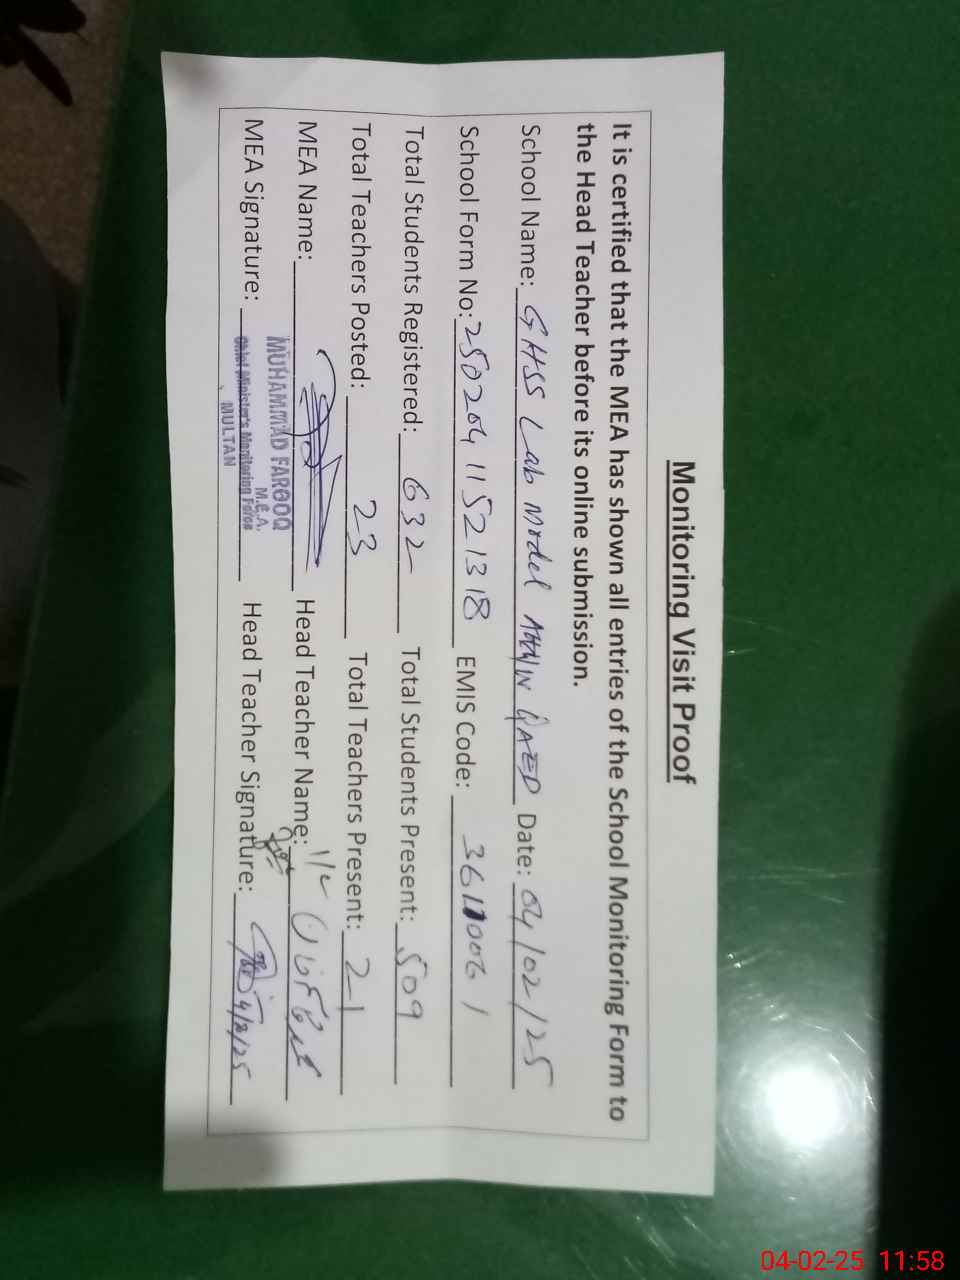 Monitoring Visit Proof
It is certified that the MEA has shown all entries of the School Monitoring Form to
the Head Teacher before its online submission.
School Name: GHSS Lab Model Date: 04/02/25
School Form No: 25020411521318 EMIS Code: 36110061
Total Students Registered: 632 Total Students Present: 509
Total Teachers Posted: 23 Total Teachers Present: 21
MEA Name: Head Teacher Name:
MUHAMMAD FAROOQ
M.E.A.
MEA Signature: Head Teacher Signature: 4/2/25
Chief Minister's Monitoring Force
MULTAN
04-02-25 11:58